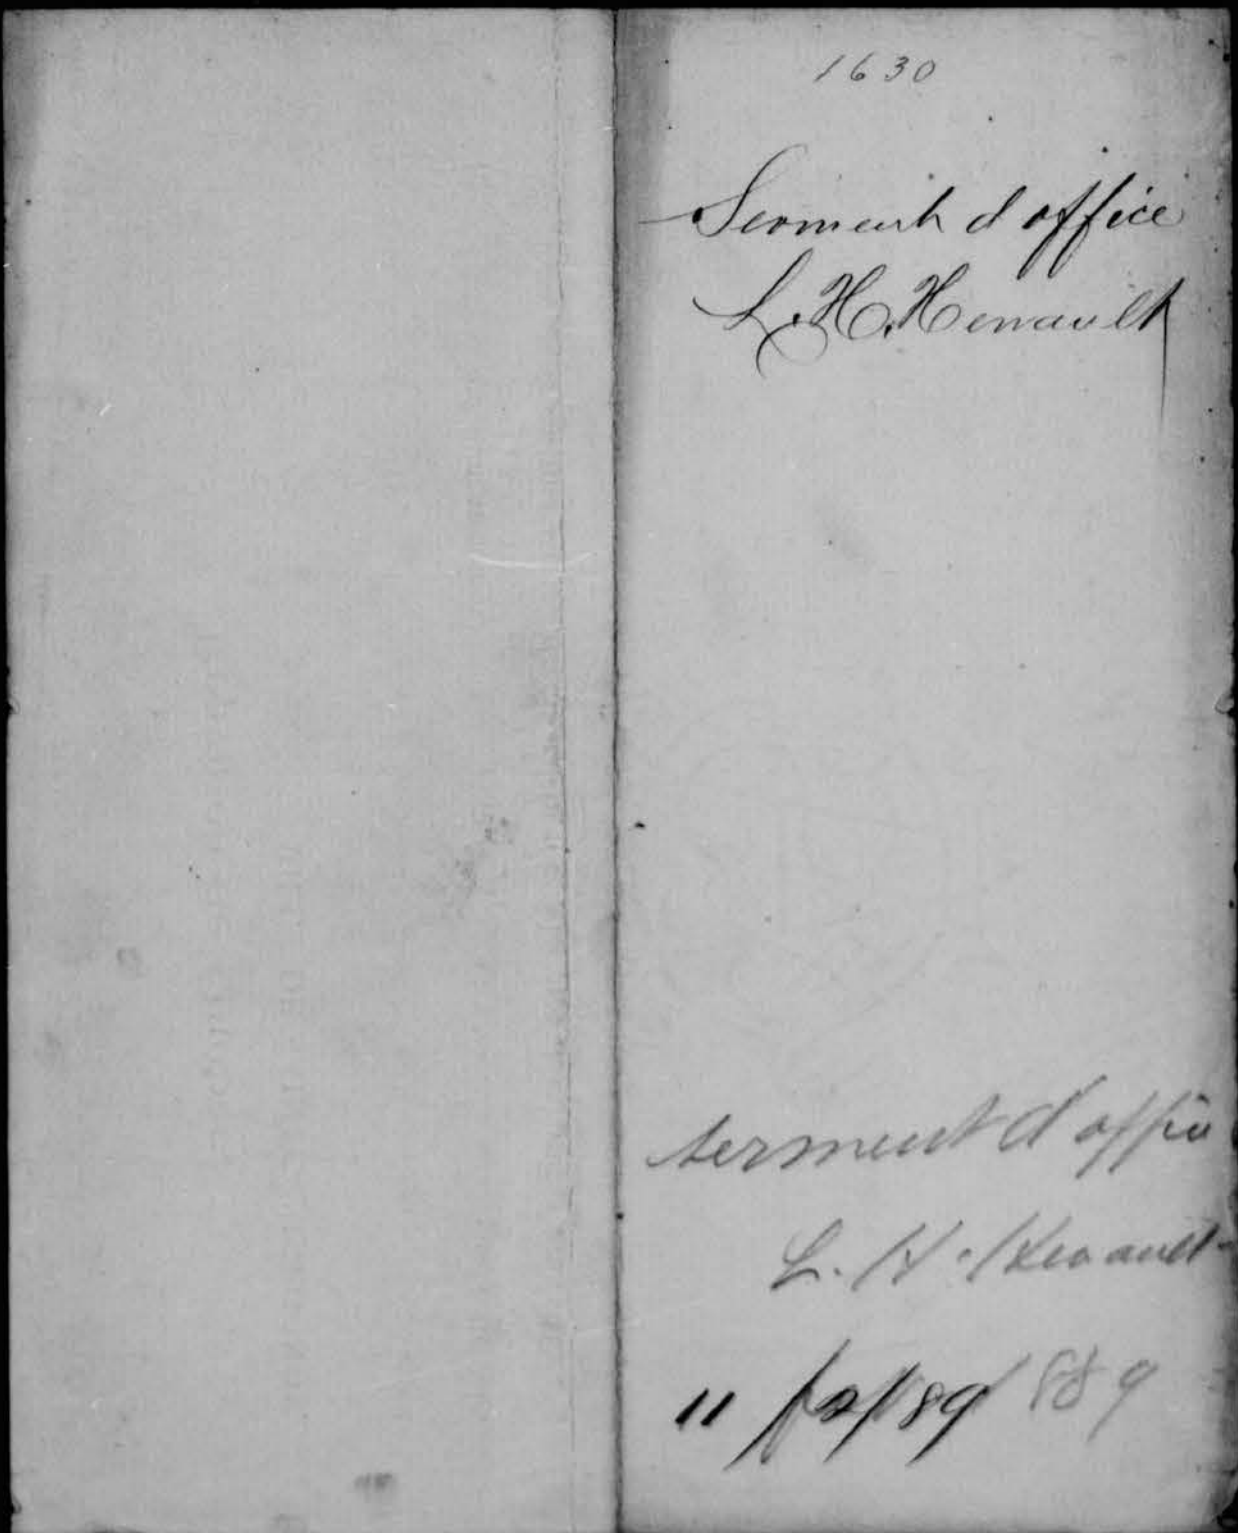 1630
Serment d office
L. H. Henault
serment d offic
L. H. Henault
11 /89 889